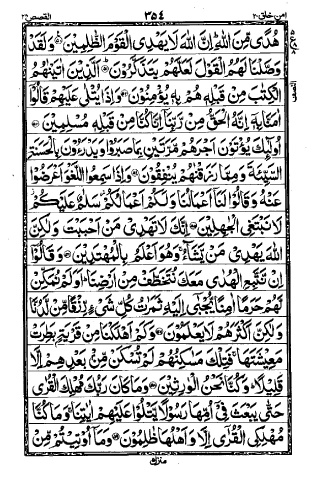 امن خلق ٢٠ ٣٥٤ القصص ٢٨
هُدًى مِّنَ اللّٰهِ اِنَّ اللّٰهَ لَا يَهْدِى الْقَوْمَ الظّٰلِمِيْنَ وَلَقَدْ
وَصَّلْنَا لَهُمُ الْقَوْلَ لَعَلَّهُمْ يَتَذَكَّرُوْنَ اَلَّذِيْنَ اٰتَيْنٰهُمُ
الْكِتٰبَ مِنْ قَبْلِهٖ هُمْ بِهٖ يُؤْمِنُوْنَ وَاِذَا يُتْلٰى عَلَيْهِمْ قَالُوْٓا
اٰمَنَّا بِهٖٓ اِنَّهُ الْحَقُّ مِنْ رَّبِّنَآ اِنَّا كُنَّا مِنْ قَبْلِهٖ مُسْلِمِيْنَ
اُولٰٓئِكَ يُؤْتَوْنَ اَجْرَهُمْ مَّرَّتَيْنِ بِمَا صَبَرُوْا وَيَدْرَءُوْنَ بِالْحَسَنَةِ
السَّيِّئَةَ وَمِمَّا رَزَقْنٰهُمْ يُنْفِقُوْنَ وَاِذَا سَمِعُوا اللَّغْوَ اَعْرَضُوْا
عَنْهُ وَقَالُوْا لَنَآ اَعْمَالُنَا وَلَكُمْ اَعْمَالُكُمْ سَلٰمٌ عَلَيْكُمْ
لَا نَبْتَغِى الْجٰهِلِيْنَ اِنَّكَ لَا تَهْدِىْ مَنْ اَحْبَبْتَ وَلٰكِنَّ
اللّٰهَ يَهْدِىْ مَنْ يَّشَآءُ وَهُوَ اَعْلَمُ بِالْمُهْتَدِيْنَ وَقَالُوْٓا
اِنْ نَّتَّبِعِ الْهُدٰى مَعَكَ نُتَخَطَّفْ مِنْ اَرْضِنَا اَوَلَمْ نُمَكِّنْ
لَّهُمْ حَرَمًا اٰمِنًا يُّجْبٰٓى اِلَيْهِ ثَمَرٰتُ كُلِّ شَىْءٍ رِّزْقًا مِّنْ لَّدُنَّا
وَلٰكِنَّ اَكْثَرَهُمْ لَا يَعْلَمُوْنَ وَكَمْ اَهْلَكْنَا مِنْ قَرْيَةٍۭ بَطِرَتْ
مَعِيْشَتَهَا فَتِلْكَ مَسٰكِنُهُمْ لَمْ تُسْكَنْ مِّنْۢ بَعْدِهِمْ اِلَّا
قَلِيْلًا وَكُنَّا نَحْنُ الْوٰرِثِيْنَ وَمَا كَانَ رَبُّكَ مُهْلِكَ الْقُرٰى
حَتّٰى يَبْعَثَ فِىْٓ اُمِّهَا رَسُوْلًا يَّتْلُوْا عَلَيْهِمْ اٰيٰتِنَا وَمَا كُنَّا
مُهْلِكِى الْقُرٰٓى اِلَّا وَاَهْلُهَا ظٰلِمُوْنَ وَمَآ اُوْتِيْتُمْ مِّنْ
منزل